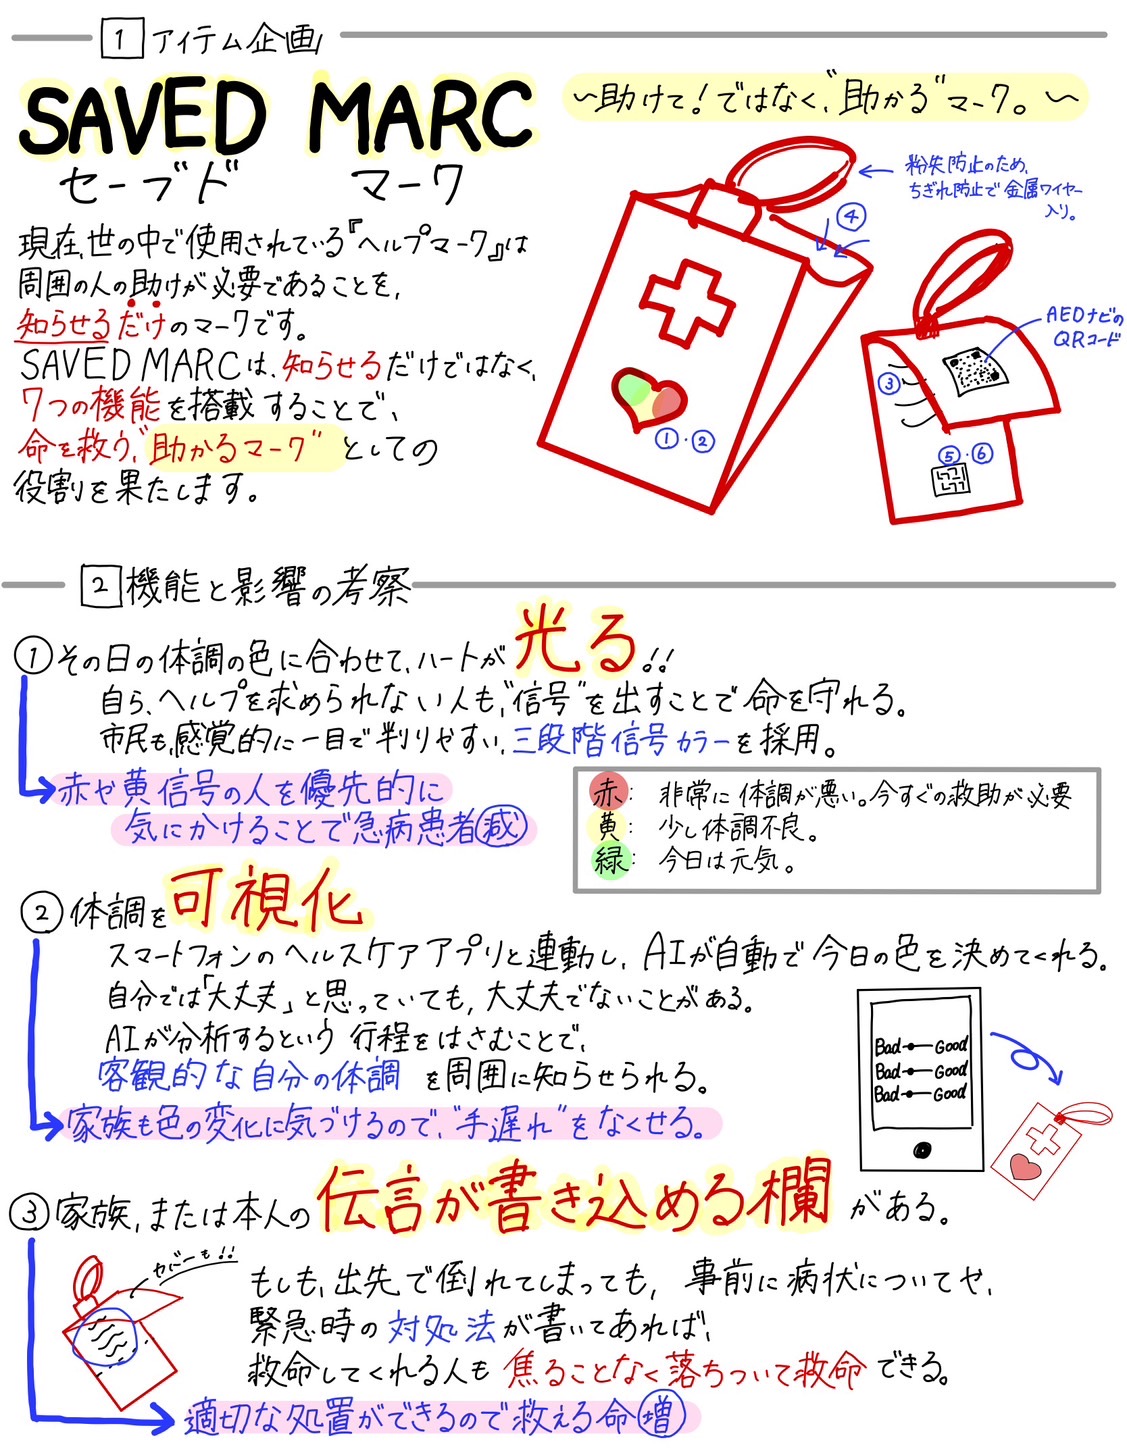 1 アイテム企画
SAVED MARC
セーブド マーク
〜助けて！ではなく、"助かる"マーク。〜
紛失防止のため、
ちぎれ防止で金属ワイヤー
入り。
④
現在、世の中で使用されている『ヘルプマーク』は
周囲の人の助けが必要であることを、
知らせるだけのマークです。
SAVED MARCは、知らせるだけではなく、
7つの機能を搭載することで、
命を救う、"助かるマーク"としての
役割を果たします。
①・②
AEDナビの
QRコード
③
⑤・⑥
2 機能と影響の考察
①その日の体調の色に合わせて、ハートが光る!!
自ら、ヘルプを求められない人も、"信号"を出すことで命を守れる。
市民も、感覚的に一目で判りやすい、三段階信号カラーを採用。
赤や黄信号の人を優先的に
気にかけることで急病患者減
赤： 非常に体調が悪い。今すぐの救助が必要
黄： 少し体調不良。
緑： 今日は元気。
②体調を可視化
スマートフォンのヘルスケアアプリと連動し、AIが自動で今日の色を決めてくれる。
自分では「大丈夫」と思っていても、大丈夫でないことがある。
AIが分析するという行程をはさむことで、
客観的な自分の体調を周囲に知らせられる。
家族も色の変化に気づけるので、"手遅れ"をなくせる。
Bad Good
Bad Good
Bad Good
③家族、または本人の伝言が書き込める欄がある。
カバーも!!
もしも、出先で倒れてしまっても、事前に病状についてや、
緊急時の対処法が書いてあれば、
救命してくれる人も焦ることなく落ちついて救命できる。
適切な処置ができるので救える命増